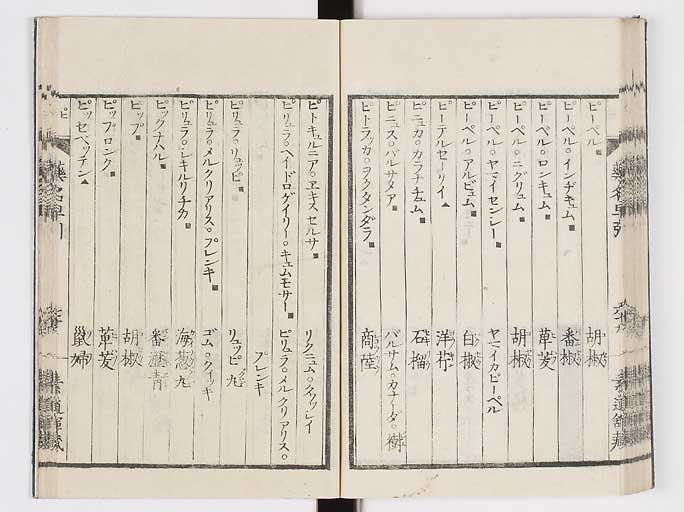 ピーペル 胡椒
ピーペル。インヂキュム 番椒
ピーペル。ロンキュム 蓽茇
ピーペル。ニグリュム 胡椒
ピーペル。ヤマイセンシー ヤマイカピーペル
ピーペル。アルビュム 白椒
ピーテルセーリイ 洋芹
ピニュカ。カラナチュム 石榴
ピニュス。バルサメア バルサム。カナーダ。樹
ピトラッカ。ヲクタンダラ 商陸
ピトキュルニア。エキスセルサ リクニュム。クイッシイ
ピリュラ。ヘイードロゲイリー。キュムモサー ピリュラ。メルクリアリス。
プレンキ
ピリュラ。リュッピー リュッピ丸
ピリュラ。メルクリアリス。プレンキ ゴム。クイッキ
ピリュラ。シキルリチカ 海葱丸
ピックナハル 番瀝青
ピップ 胡椒
ピップロング 蓽茇
ピッセベッデン 鼠婦